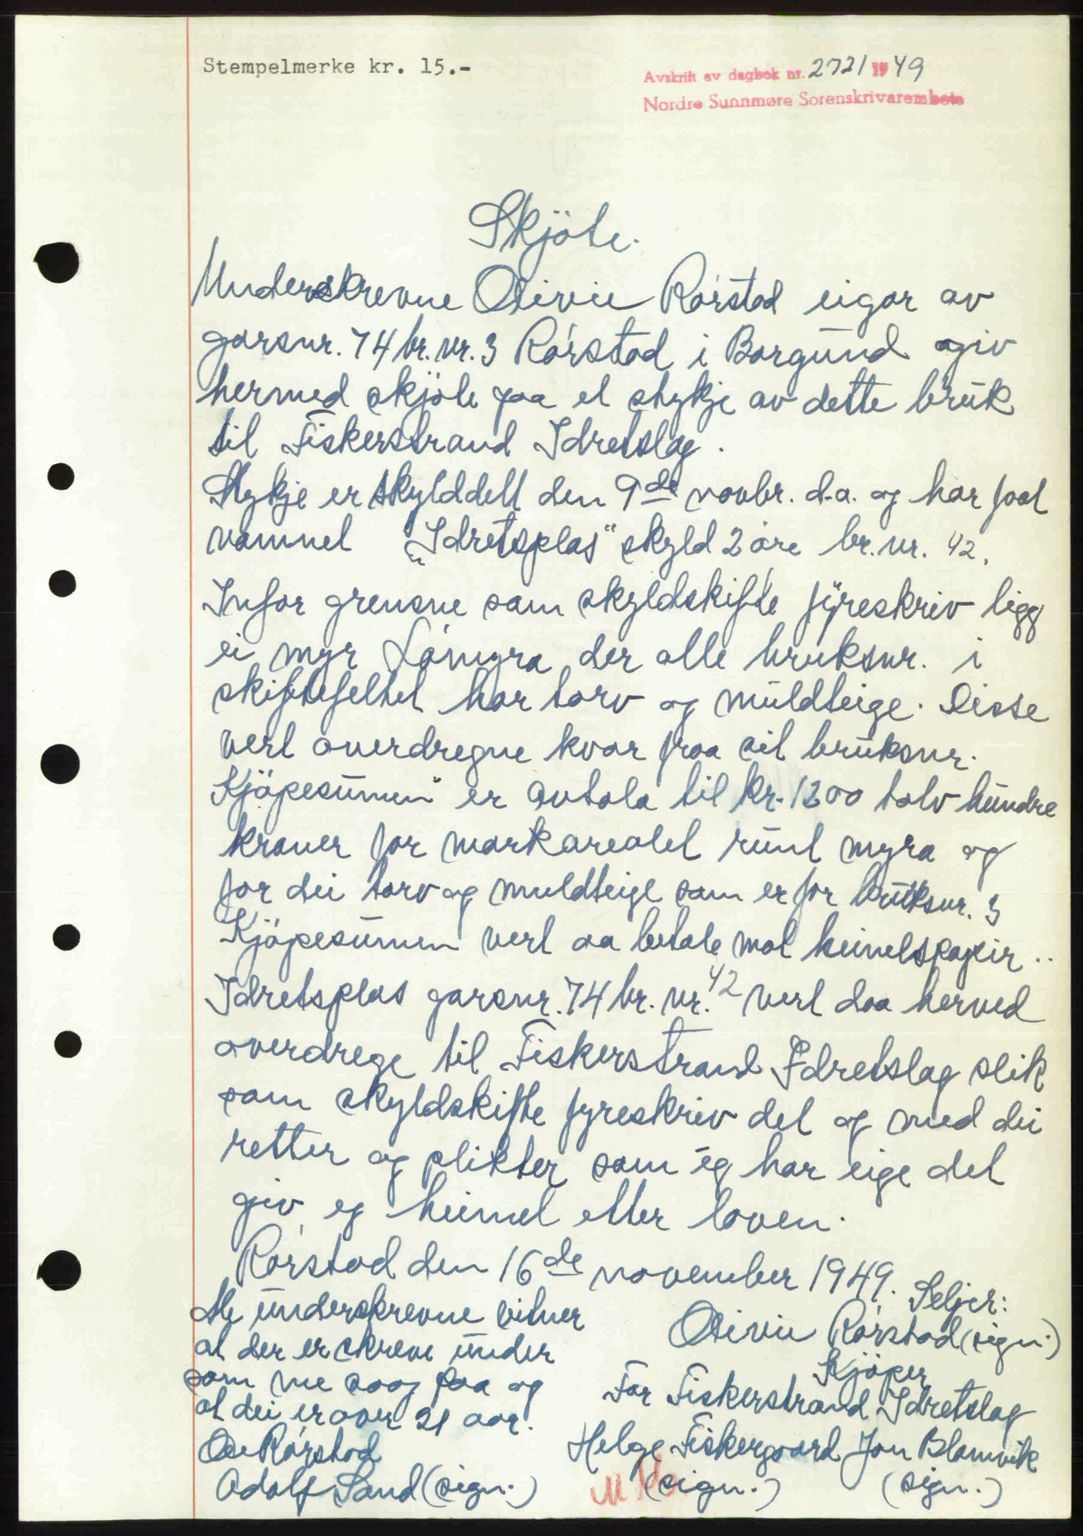 Stempelmerke kr. 15.-
Avskrift av dagbok nr. 2721 1949
Nordre Sunnmøre Sorenskrivarembete
Skjöte.
Underskrevne Rørstad eigar av
garsnr. 74 br. nr. 3 Rørstad i Borgund giv
hermed skjöte paa et stykje av dette bruk
til Fiskerstrand Idretslag.
Stykje er skylddelt den 9de novbr. d.a. og har faat
namnet "Idretsplas" skyld 2 øre br. nr. 42.
Infor grensne som skyldskifte fyreskriv ligg
ei myr der alle bruksnr. i
skiftefeltet har torv og muldteige. Disse
vert overdregne kvar fraa sit bruksnr.
Kjöpesumen er avtala til kr. 1200 tolv hundre
kroner for markarealet runt myra og
for dei torv og muldteige som er for bruksnr. 3
Kjöpesumen vert aa betale mot heimelspapir..
Idretsplas garsnr. 74 br. nr. 42 vert daa herved
overdrege til Fiskerstrand Idretslag slik
som skyldskifte fyreskriv det og med dei
retter og plikter som eg har eige det
giv eg heimel etter loven.
Rørstad den 16de november 1949.
Seljer:
Rørstad (sign.)
Me underskrevne vitner
at der er skreve under
som me saag paa og
at dei er over 21 aar.
Rørstad
Adolf Sand (sign.)
Kjöper
For Fiskerstrand Idretslag
Helge Fiskergaard Jon Blomvik
(sign.) (sign.)